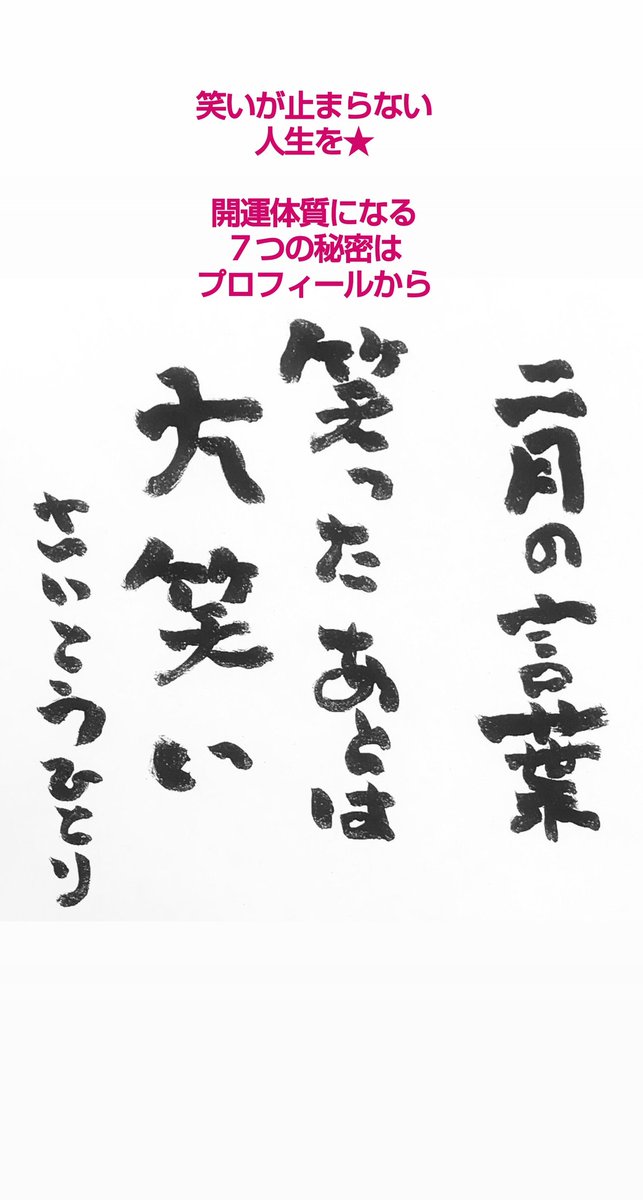 笑いが止まらない
人生を★
開運体質になる
7つの秘密は
プロフィールから
三月の言葉
笑ったあとは
大笑い
さいとうひとり